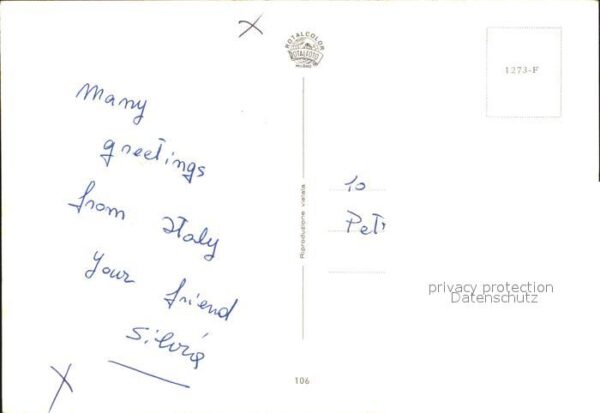 Many
greetings
from Italy
your friend
Silvia
ROTALCOLOR
ROTALFOTO
MILANO
Riproduzione vietata
106
1273-F
To
Pet
privacy protection
Datenschutz